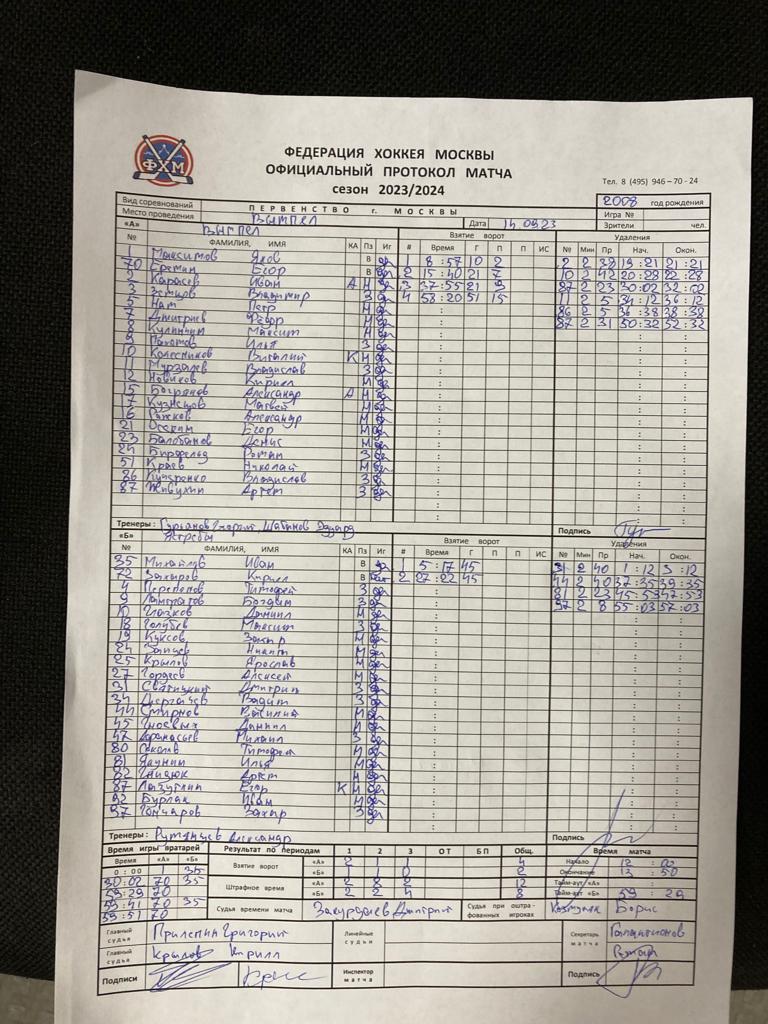 ФХМ
ФЕДЕРАЦИЯ ХОККЕЯ МОСКВЫ
ОФИЦИАЛЬНЫЙ ПРОТОКОЛ МАТЧА
сезон 2023/2024
Тел. 8 (495) 946–70-24
Вид соревнований ПЕРВЕНСТВО г. МОСКВЫ 2008 год рождения
Место проведения Вымпел Дата Игра №
«А» Вымпел Взятие ворот Зрители чел.
Удаления
№ ФАМИЛИЯ, ИМЯ КА Пз Иг # Время Г П П ИС № Мин Пр Нач. Окон.
1 Максимов Яков В 1 8:57 10 2 2 2 19:21 21:21
70 Еремин Егор В 2 15:40 21 7 10 2 42 20:28 22:28
2 Карасев Иван А Н 3 37:55 21 9 87 2 23 30:02 32:02
3 Владимир З 4 58:20 51 15 11 2 5 34:12 36:12
5 Нам Петр Н 86 2 5 36:38 38:38
7 Дмитриев Федор Н 87 2 31 50:32 52:32
8 Максим Н
9 Пахомов Илья З
10 Колесников Виталий К Н
11 Мурзалев Владислав З
12 Новиков Кирилл Н
15 Богрянов Александр А Н
17 Кузнецов Матвей Н
18 Рыжков Александр Н
21 Осекин Егор Н
23 Балобанов Денис Н
24 Бирфельд Роман З
51 Краев Николай Н
86 Кучеренко Владислав З
87 Живухин Артем З
Тренеры: Гурьянов Георгий, Шабанов Эдуард Подпись
«Б» Ястребы Взятие ворот Удаления
№ ФАМИЛИЯ, ИМЯ КА Пз Иг # Время Г П П ИС № Мин Пр Нач. Окон.
35 Михайлов Иван В 1 5:17 45 31 2 40 1:12 3:12
72 Захаров Кирилл В 2 27:22 45 44 2 40 37:35 39:35
4 Тимофей З 81 2 23 45:53 47:53
9 Богдан З 97 2 8 55:03 57:03
10 Глазков Даниил Н
18 Голубев Максим З
19 Куксов Захар Н
24 Зайцев Никита Н
25 Крылов Ярослав Н
27 Гордеев Алексей Н
31 Святицкий Дмитрий З
34 Дергачев Вадим З
44 Смирнов Василий Н
45 Гневых Даниил Н
47 Афанасьев Михаил З
80 Соколов Тимофей Н
81 Яунин Илья Н
82 Гнидюк Артем Н
87 Лазуткин Егор К Н
92 Бурлак Иван Н
97 Гончаров Захар З
Тренеры: Румянцев Александр Подпись
Время игры вратарей Результат по периодам 1 2 3 ОТ БП Общ. Время матча
Время «А» «Б» Взятие ворот «А» 2 1 1 4 Начало 12:00
0:00 1 35 «Б» 1 1 0 2 Окончание 13:50
30:02 70 35 Штрафное время «А» 2 8 2 12 Тайм-аут «А» :
59:29 70 «Б» 2 2 4 8 Тайм-аут «Б» 59:29
59:41 70 35 Судья времени матча Дмитрий Судья при оштрафованных игроках Борис
59:51 70
Главный судья Прилепин Григорий Линейные судьи Секретарь матча
Главный судья Крылов Кирилл
Подписи Инспектор матча Подпись